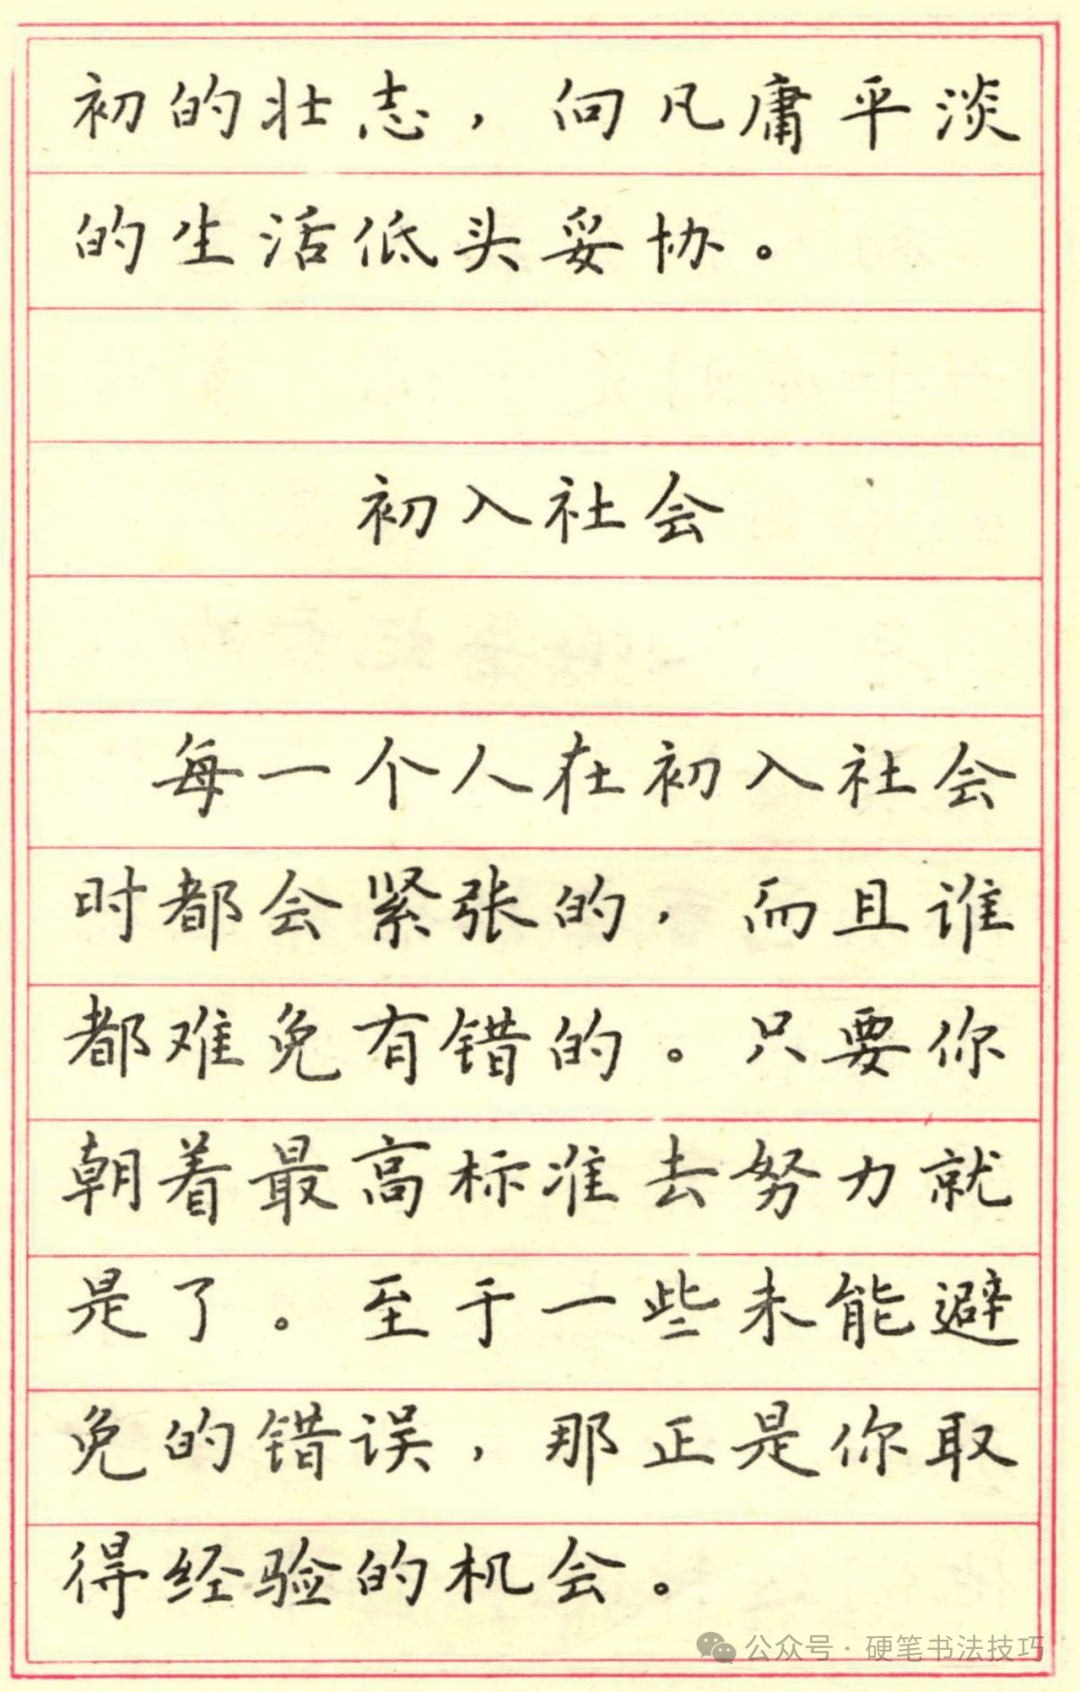 初的壮志，向凡庸平淡
的生活低头妥协。
初入社会
每一个人在初入社会
时都会紧张的，而且谁
都难免有错的。只要你
朝着最高标准去努力就
是了。至于一些未能避
免的错误，那正是你取
得经验的机会。
公众号·硬笔书法技巧